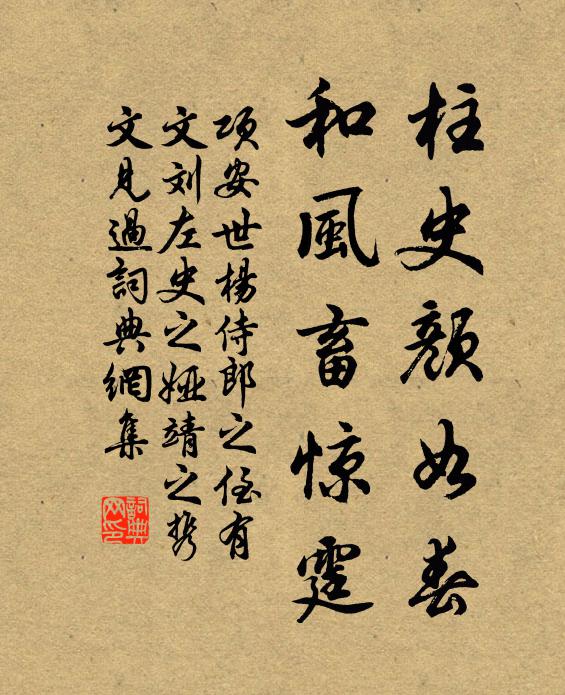 柱史顏如春
和風畜惊霆
项安世楊侍郎之侄有
文刘左史之婭靖之携
文見過詞典網集
詞典
网印